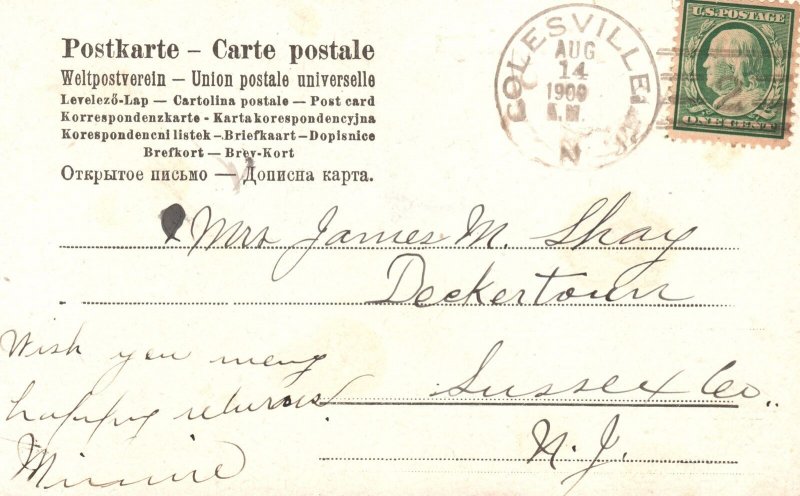 Postkarte – Carte postale
Weltpostverein — Union postale universelle
Levelező-Lap — Cartolina postale — Post card
Korrespondenzkarte - Karta korespondencyjna
Korespondencni listek – Briefkaart — Dopisnice
Brefkort — Brev-Kort
Открытое письмо — Дописна карта.
COLESVILLE
AUG
14
1909
A.M.
N.
U.S. POSTAGE
ONE CENT
Mrs James M. Shay
Deckertown
Sussex Co.,
N.J.
Wish you many
happy returns.